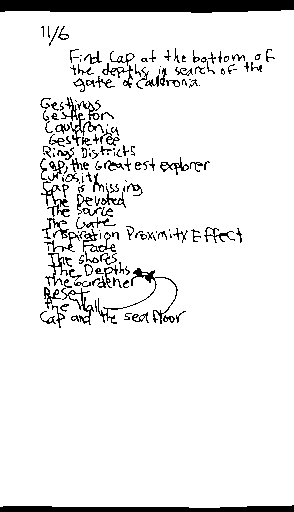 11/6
Find Cap at the bottom of
the depths in search of the
gate of Cauldronia.
Gestlings
Gestleton
Cauldronia
Gestletree
Rings Districts
Cap, the Greatest explorer
Curiosity
Cap is missing
The Devoted
The Source
The Gate
Inspiration Proximity Effect
The Fade
The shores
The Depths
The Gardener
Reset
The Wall
Cap and the sea floor